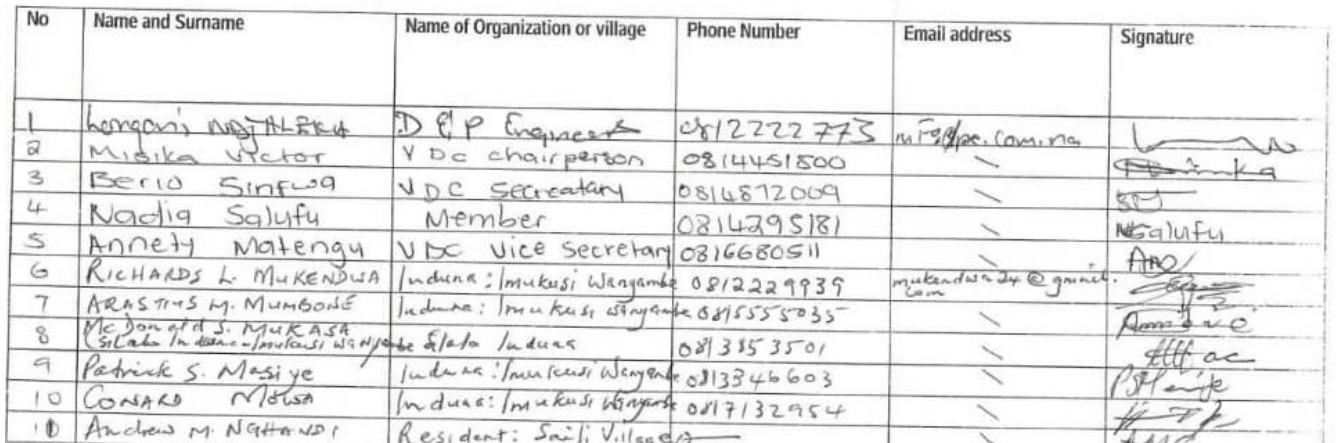 No Name and Surname Name of Organization or village Phone Number Email address Signature
1 D & P Engineers 0812222773
2 Misika Victor VDC chairperson 0814451800
3 Berio Sinfwa VDC Secreatary 0814872009
4 Nadia Salufu Member 0814295181 NSalufu
5 Annety Matengu VDC Vice Secretary 0816680511
6 RICHARDS L. MUKENDWA Induna: Imukusi Wangambe 0812229939 mukendwa24@gmail.
com
7 ARASTMS M. MUMBONE Induna: Imukusi Wangambe 0815555035
8 McDonald S. MUKASA
Silalo Induna - Imukusi Wangambe Silalo Induna 0813853501
9 Patrick S. Masiye Induna: Imukusi Wangambe 0813346603
10 CONARD Induna: Imukusi Wangambe 0817132954
11 Andrew M. NGHANDI Resident: Saili Village